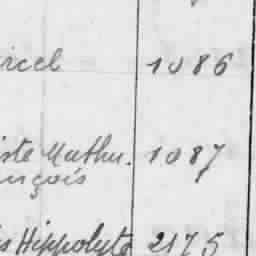 rcel 1086
iste Mathu. 1087
ançois
is Hippolyte 2175